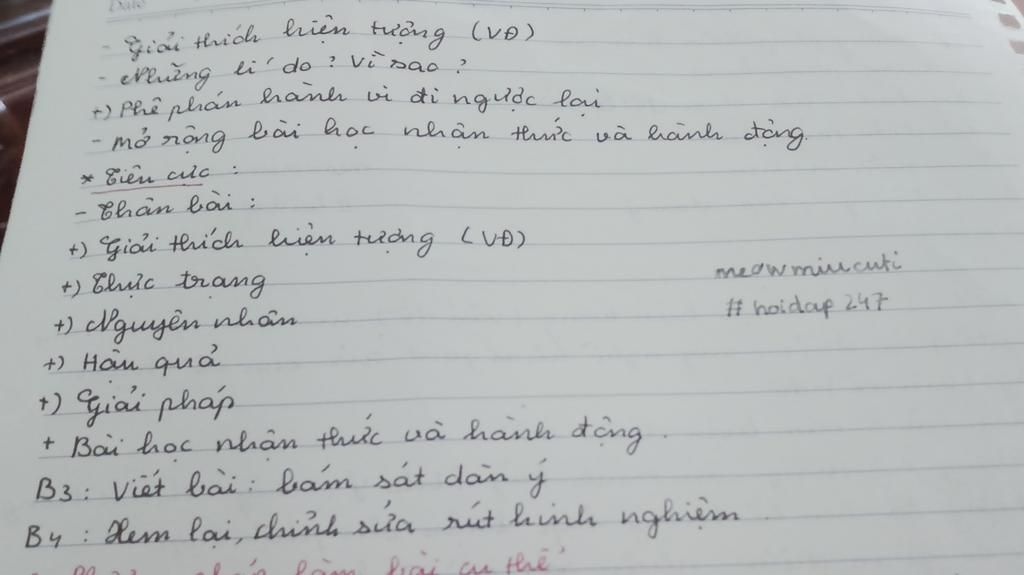 Date
- Giải thích hiện tượng (VĐ)
- Những lí do ? Vì sao ?
+) Phê phán hành vi đi ngược lại
- Mở rộng bài học nhận thức và hành động.
* Tiêu cực :
- Thân bài :
+) Giải thích hiện tượng (VĐ)
+) Thực trạng
+) Nguyên nhân
+) Hậu quả
+) Giải pháp
+ Bài học nhận thức và hành động.
meowmiucuti
# hoidap 247
B3 : Viết bài : bám sát dàn ý
B4 : Xem lại, chỉnh sửa rút kinh nghiệm
làm bài cụ thể